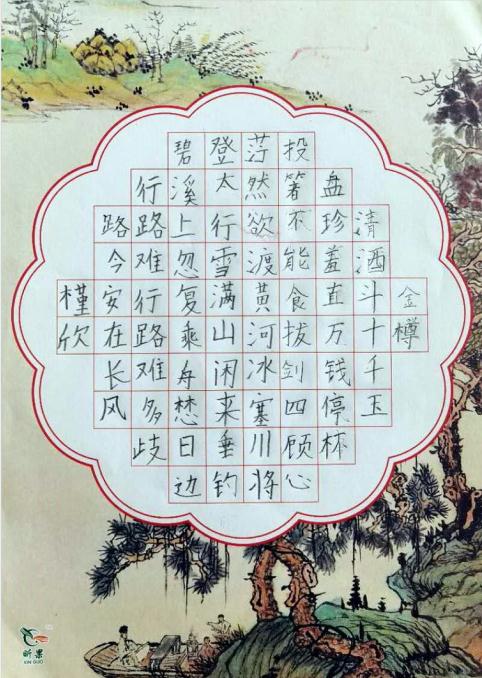 金樽
清酒斗十千玉
盘珍羞直万钱停杯
投箸不能食拔剑四顾心
茫然欲渡黄河冰塞川将
登太行雪满山闲来垂钓
碧溪上忽复乘舟梦日边
行路难行路难多歧
路今安在长风
槿欣
昕果
XIN GUO